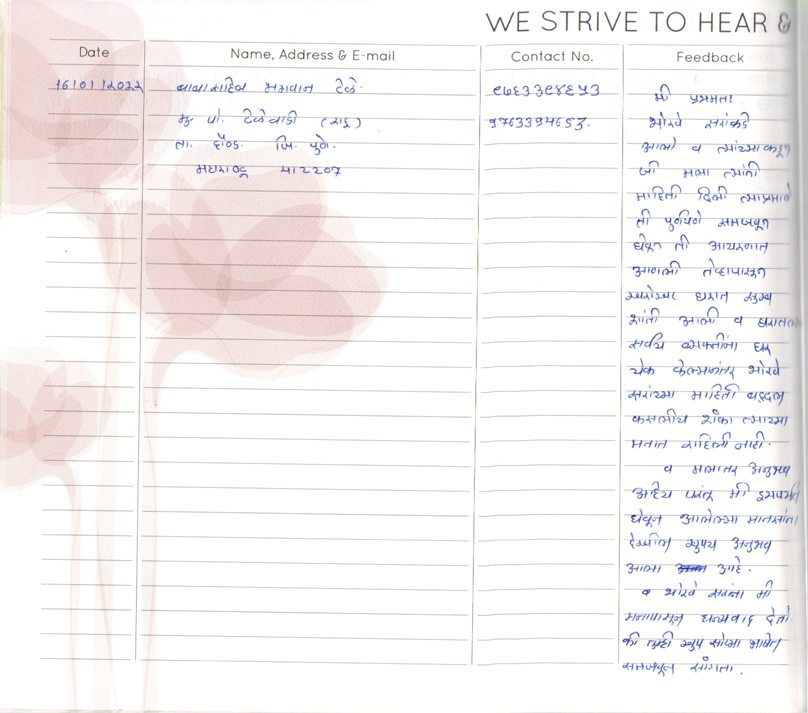 WE STRIVE TO HEAR &
Date
Name, Address & E-mail
Contact No.
Feedback
16/01/2022
बाबासाहेब भगवान टेळे.
९७६३३९४६५३
मु. पो. टेळेवाडी (राहु)
9763394653.
ता. दौंण्ड. जि. पुणे.
महाराष्ट्र
मी प्रथमता
भोरवे सरांकडे
आलो व त्यांच्याकडून
जी मला त्यांनी
माहिती दिली त्याप्रमाणे
ती पुर्णपणे समजवून
घेवून ती आचरणात
आणली तेव्हापासून
खरोखर घरात सुख
शांती आली व घरातल्या
सर्वच व्यक्तींना घर
चेक केल्यानंतर भोरवे
सरांच्या माहिती बद्दल
कसलीच शंका त्यांच्या
मनात राहिली नाही.
व मलातर अनुभव
आहेच परंतू मी इथपर्यंत
घेवून आलेल्या माणसांना
देखील खुपच अनुभव
आला आहे.
व भोरवे सरांना मी
मनापासून धन्यवाद देतो.
की तुम्ही खुप सोप्या भाषेत
समजवून सांगता.